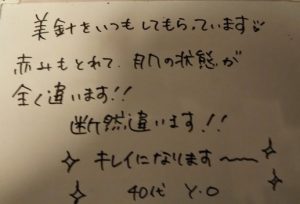 美針をいつもしてもらっています♡
赤みもとれて、肌の状態が
全く違います!!
断然違います!!
キレイになります〜〜
40代 Y.O